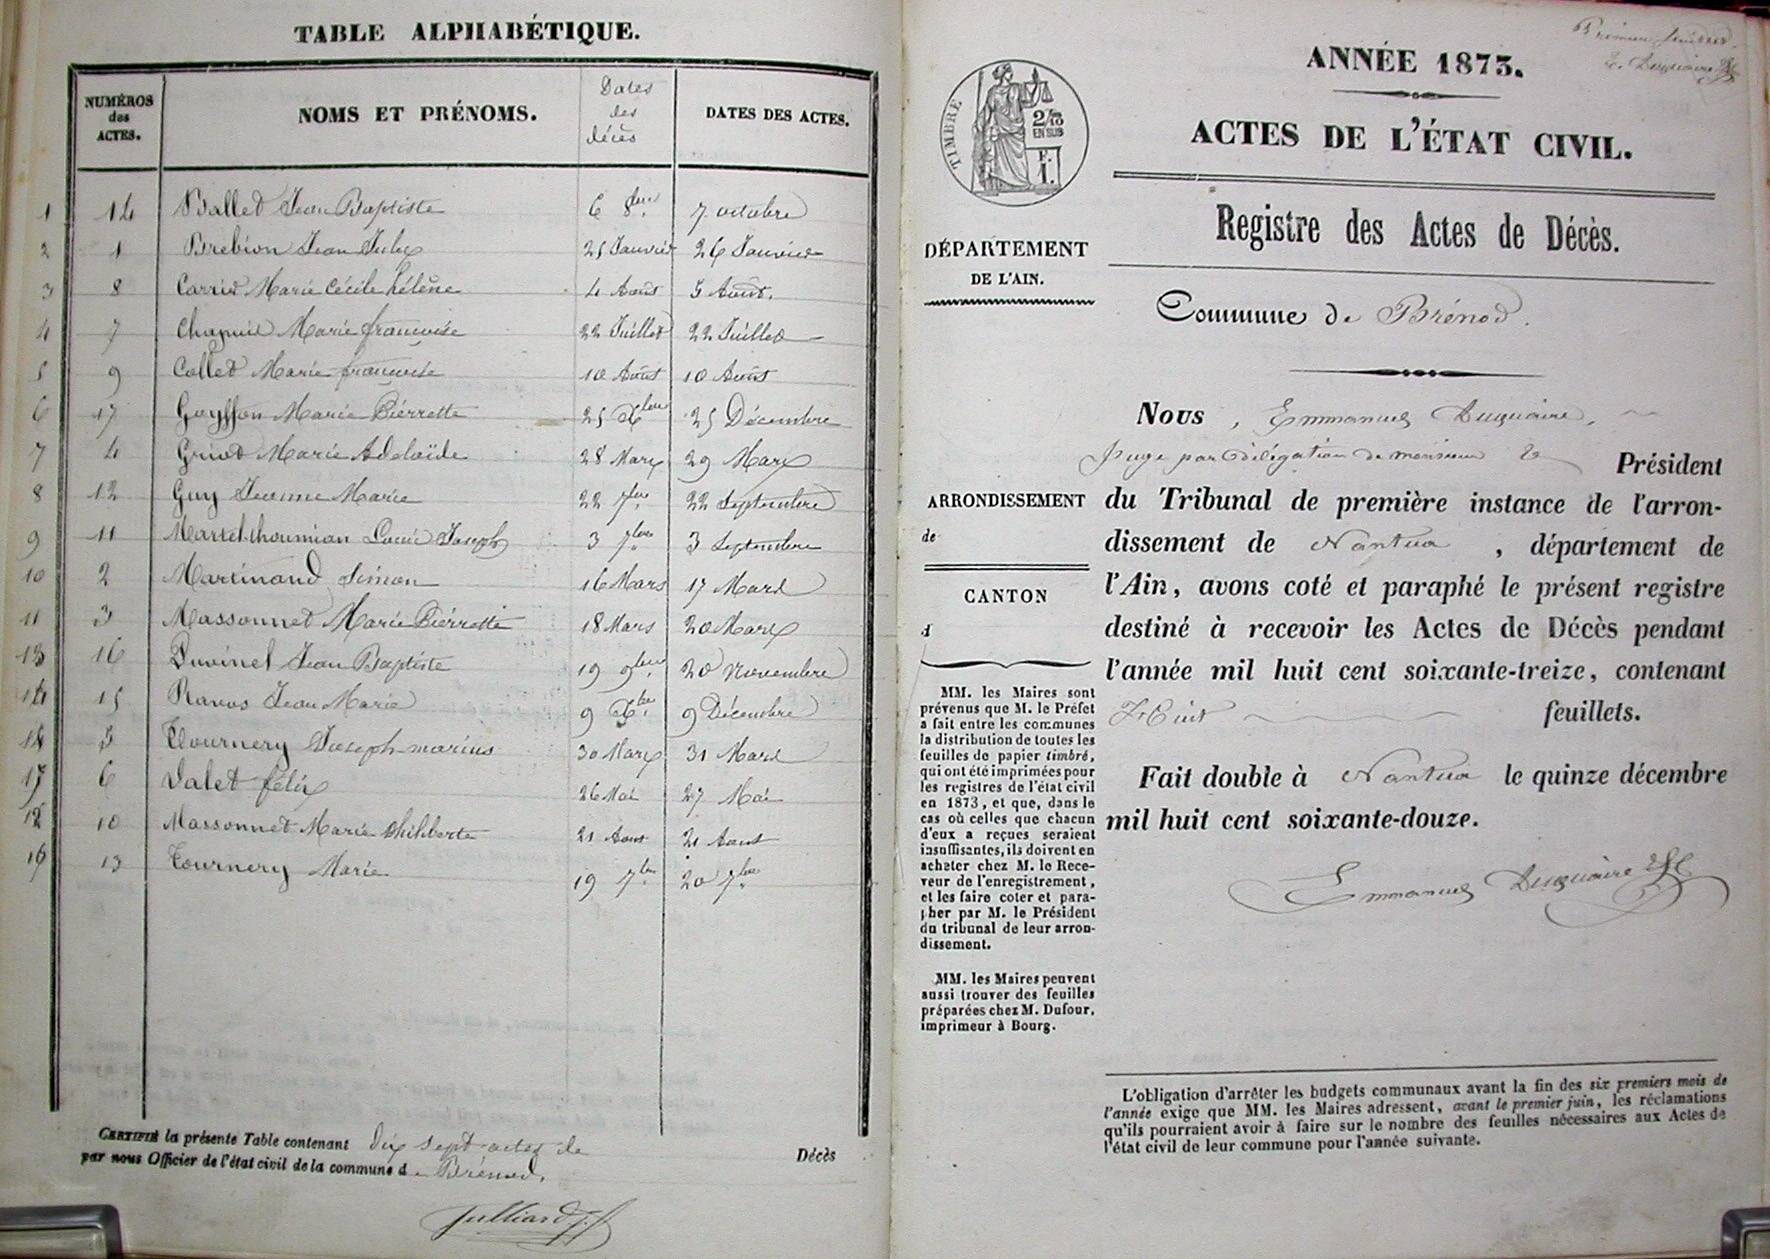 TABLE ALPHABÉTIQUE.
NUMÉROS des ACTES. NOMS ET PRÉNOMS. Dates des décès DATES DES ACTES.
1 14 Ballet Jean Baptiste 6 8bre 7 octobre
2 1 Brebion Jean 25 Janvier 26 Janvier
3 8 Carrier Marie Cécile hélène 4 Août 5 Août.
4 7 Chapuis Marie françoise 22 Juillet 22 Juillet
5 9 Collet Marie françoise 10 Août 10 Août
6 17 Goyffon Marie Pierrette 25 Xbre 25 Décembre
7 4 Griot Marie Adelaïde 28 Mars 29 Mars
8 12 Guy Jeanne Marie 22 7bre 22 Septembre
9 11 Martel-thoumian Joseph 3 7bre 3 Septembre
10 2 Martinand Simon 16 Mars 17 Mars
11 3 Massonnet Marie Pierrette 18 Mars 20 Mars
13 16 Juvinel Jean Baptiste 19 9bre 20 Novembre
14 15 Ravos Jean Marie 9 Xbre 9 Décembre
5 Tournery Joseph-marius 30 Mars 31 Mars
17 6 Valet félix 26 Mai 27 Mai
12 10 Massonnet Marie Philiberte 21 Aout 21 Aout
16 13 Tournery Marie 19 7bre 20 7bre
CERTIFIÉ la présente Table contenant Dix sept actes de Décès
par nous Officier de l'état civil de la commune de Brénod.
Julliard
Premier feuillet.
E. Duquaire
ANNÉE 1873.
ACTES DE L'ÉTAT CIVIL.
TIMBRE
2/10
EN SUS
Registre des Actes de Décès.
DÉPARTEMENT
DE L'AIN.
Commune de Brénod.
Nous, Emmanuel Duquaire,
Juge par délégation de monsieur le Président
du Tribunal de première instance de l'arron-
dissement de Nantua, département de
l'Ain, avons coté et paraphé le présent registre
destiné à recevoir les Actes de Décès pendant
l'année mil huit cent soixante-treize, contenant
Huit feuillets.
Fait double à Nantua le quinze décembre
mil huit cent soixante-douze.
Emmanuel Duquaire
ARRONDISSEMENT
de
CANTON
d
MM. les Maires sont
prévenus que M. le Préfet
a fait entre les communes
la distribution de toutes les
feuilles de papier timbré,
qui ont été imprimées pour
les registres de l'état civil
en 1873, et que, dans le
cas où celles que chacun
d'eux a reçues seraient
insuffisantes, ils doivent en
acheter chez M. le Rece-
veur de l'enregistrement,
et les faire coter et para-
pher par M. le Président
du tribunal de leur arron-
dissement.
MM. les Maires peuvent
aussi trouver des feuilles
préparées chez M. Dufour,
imprimeur à Bourg.
L'obligation d'arrêter les budgets communaux avant la fin des six premiers mois de
l'année exige que MM. les Maires adressent, avant le premier juin, les réclamations
qu'ils pourraient avoir à faire sur le nombre des feuilles nécessaires aux Actes de
l'état civil de leur commune pour l'année suivante.